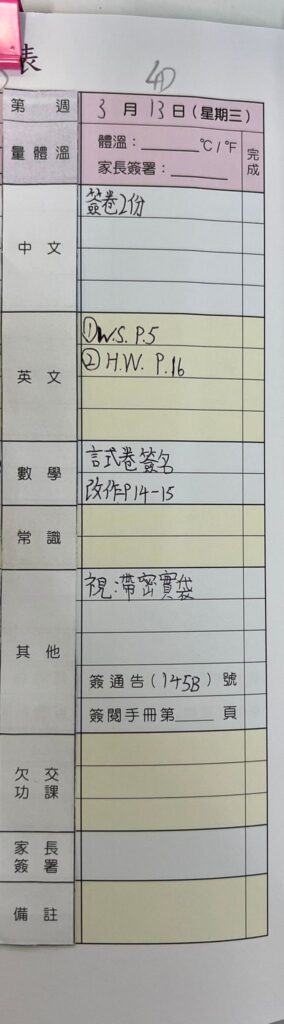 表
4D
第 週 3 月 13 日 (星期三)
量體溫 體溫：______ °C / °F 完成
家長簽署：______
中文 簽卷2份
英文 ①W.S. P.5
② H.W. P.16
數學 試卷簽名
改作P14-15
常識
其他 視：帶密實袋
簽通告 (145B) 號
簽閱手冊第____頁
欠交功課
家長簽署
備註